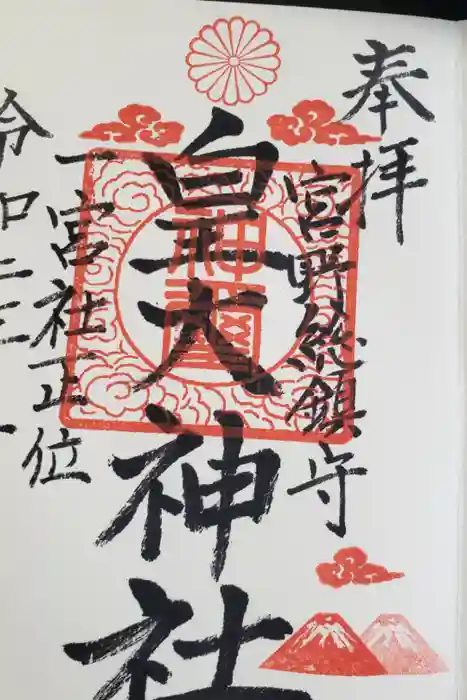 奉拝
宮野総鎮守
皇大神社
一宮社正位
令和